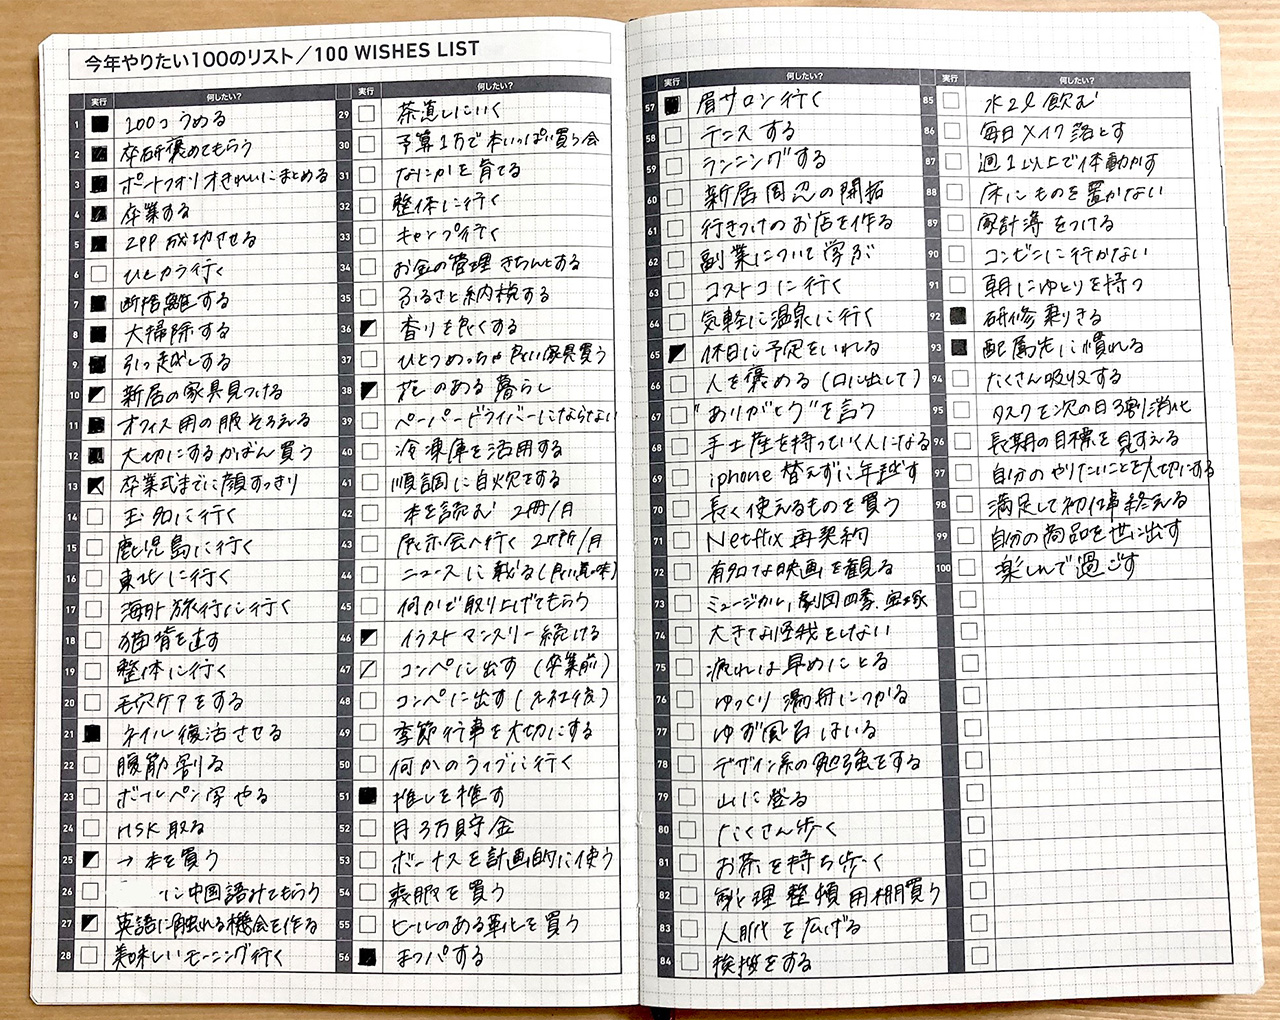 今年やりたい100のリスト／100 WISHES LIST
実行 何したい？
1 100コうめる
2 卒研褒めてもらう
3 ポートフォリオきれいにまとめる
4 卒業する
5 2PP成功させる
6 ひとカラ行く
7 断捨離する
8 大掃除する
9 引っ越しする
10 新居の家具見つける
11 オフィス用の服そろえる
12 大切にするかばん買う
13 卒業式までに顔すっきり
14 玉名に行く
15 鹿児島に行く
16 東北に行く
17 海外旅行に行く
18 猫背を直す
19 整体に行く
20 毛穴ケアをする
21 ネイル復活させる
22 腹筋割る
23 ボールペン字やる
24 HSK取る
25 → 本を買う
26 に中国語みてもらう
27 英語に触れる機会を作る
28 美味しいモーニング行く
実行 何したい？
29 茶道しにいく
30 予算1万で本いっぱい買う会
31 なにかを育てる
32 整体に行く
33 キャンプ行く
34 お金の管理きちんとする
35 ふるさと納税する
36 香りを良くする
37 ひとつめっちゃ良い家具買う
38 花のある暮らし
39 ペーパードライバーにならない
40 冷凍庫を活用する
41 順調に自炊をする
42 本を読む 2冊/月
43 展示会へ行く 2ヶ所/月
44 ニュースに載る(良い意味)
45 何かで取り上げてもらう
46 イラストマンスリー続ける
47 コンペに出す(卒業前)
48 コンペに出す(入社後)
49 季節行事を大切にする
50 何かのライブに行く
51 推しを推す
52 月3万貯金
53 ボーナスを計画的に使う
54 喪服を買う
55 ヒールのある靴を買う
56 まつパする
実行 何したい？
57 眉サロン行く
58 テニスする
59 ランニングする
60 新居周辺の開拓
61 行きつけのお店を作る
62 副業について学ぶ
63 コストコに行く
64 気軽に温泉に行く
65 休日に予定をいれる
66 人を褒める(口に出して)
67 "ありがとう"を言う
68 手土産を持っていく人になる
69 iphone替えずに年越す
70 長く使えるものを買う
71 Netflix再契約
72 有名な映画を観る
73 ミュージカル,劇団四季.宝塚
74 大きな怪我をしない
75 疲れは早めにとる
76 ゆっくり湯舟につかる
77 ゆず風呂はいる
78 デザイン系の勉強をする
79 山に登る
80 たくさん歩く
81 お茶を持ち歩く
82 整理整頓用棚買う
83 人脈を広げる
84 挨拶をする
実行 何したい？
85 水2ℓ飲む
86 毎日メイク落とす
87 週1以上で体動かす
88 床にものを置かない
89 家計簿をつける
90 コンビニに行かない
91 朝にゆとりを持つ
92 研修乗りきる
93 配属先に慣れる
94 たくさん吸収する
95 タスクを次の日3割消化
96 長期の目標を見すえる
97 自分のやりたいことを大切にする
98 満足して初仕事終える
99 自分の商品を世に出す
100 楽しんで過ごす